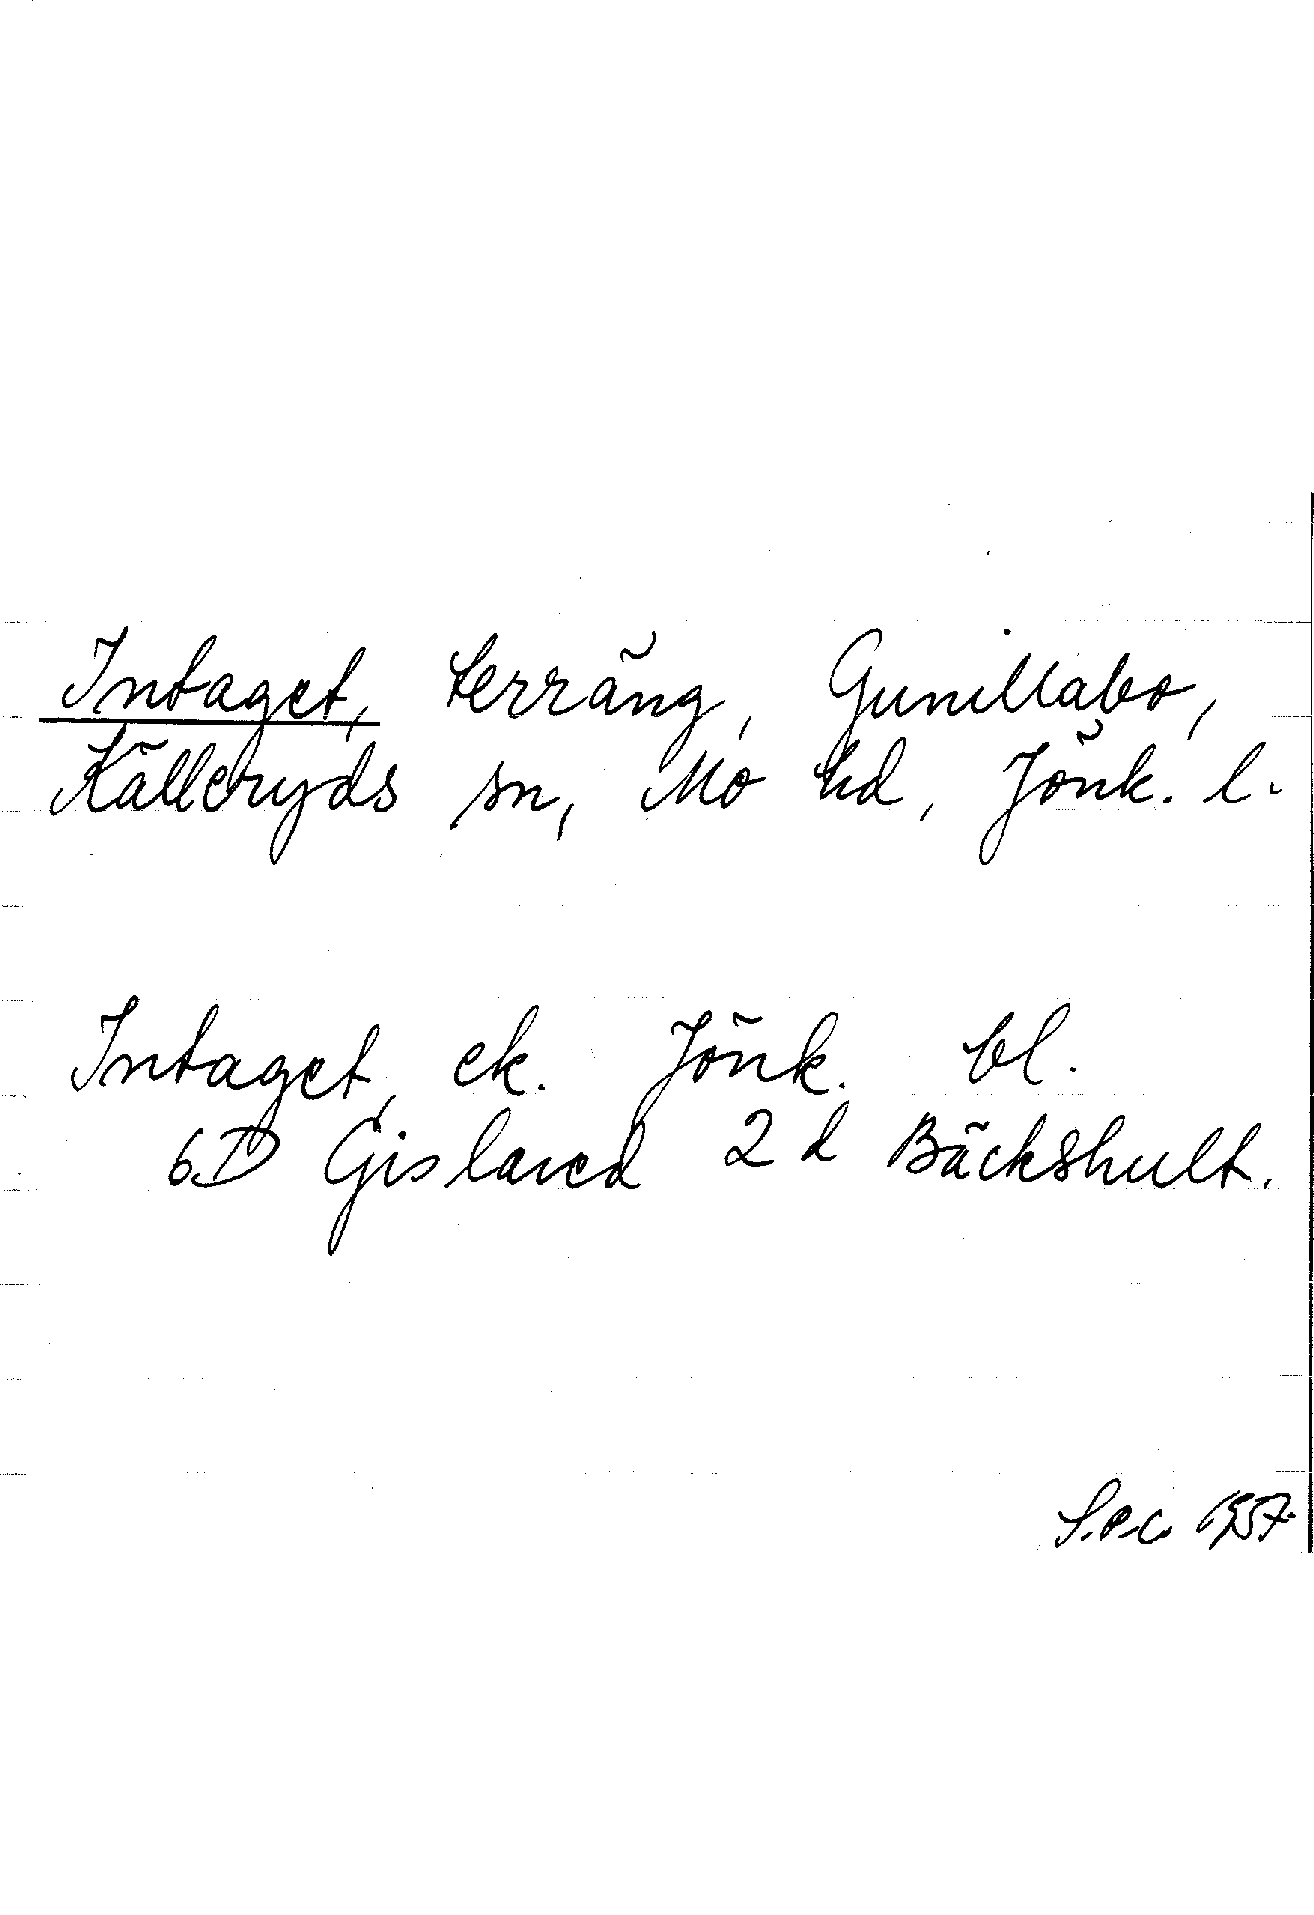 Intaget, terräng, Gunillabo,
Källeryds sn, Mo hd, Jönk. l.
Intaget, ek. Jönk. bl.
6D Gislaved 2 d Bäckshult.
1957.